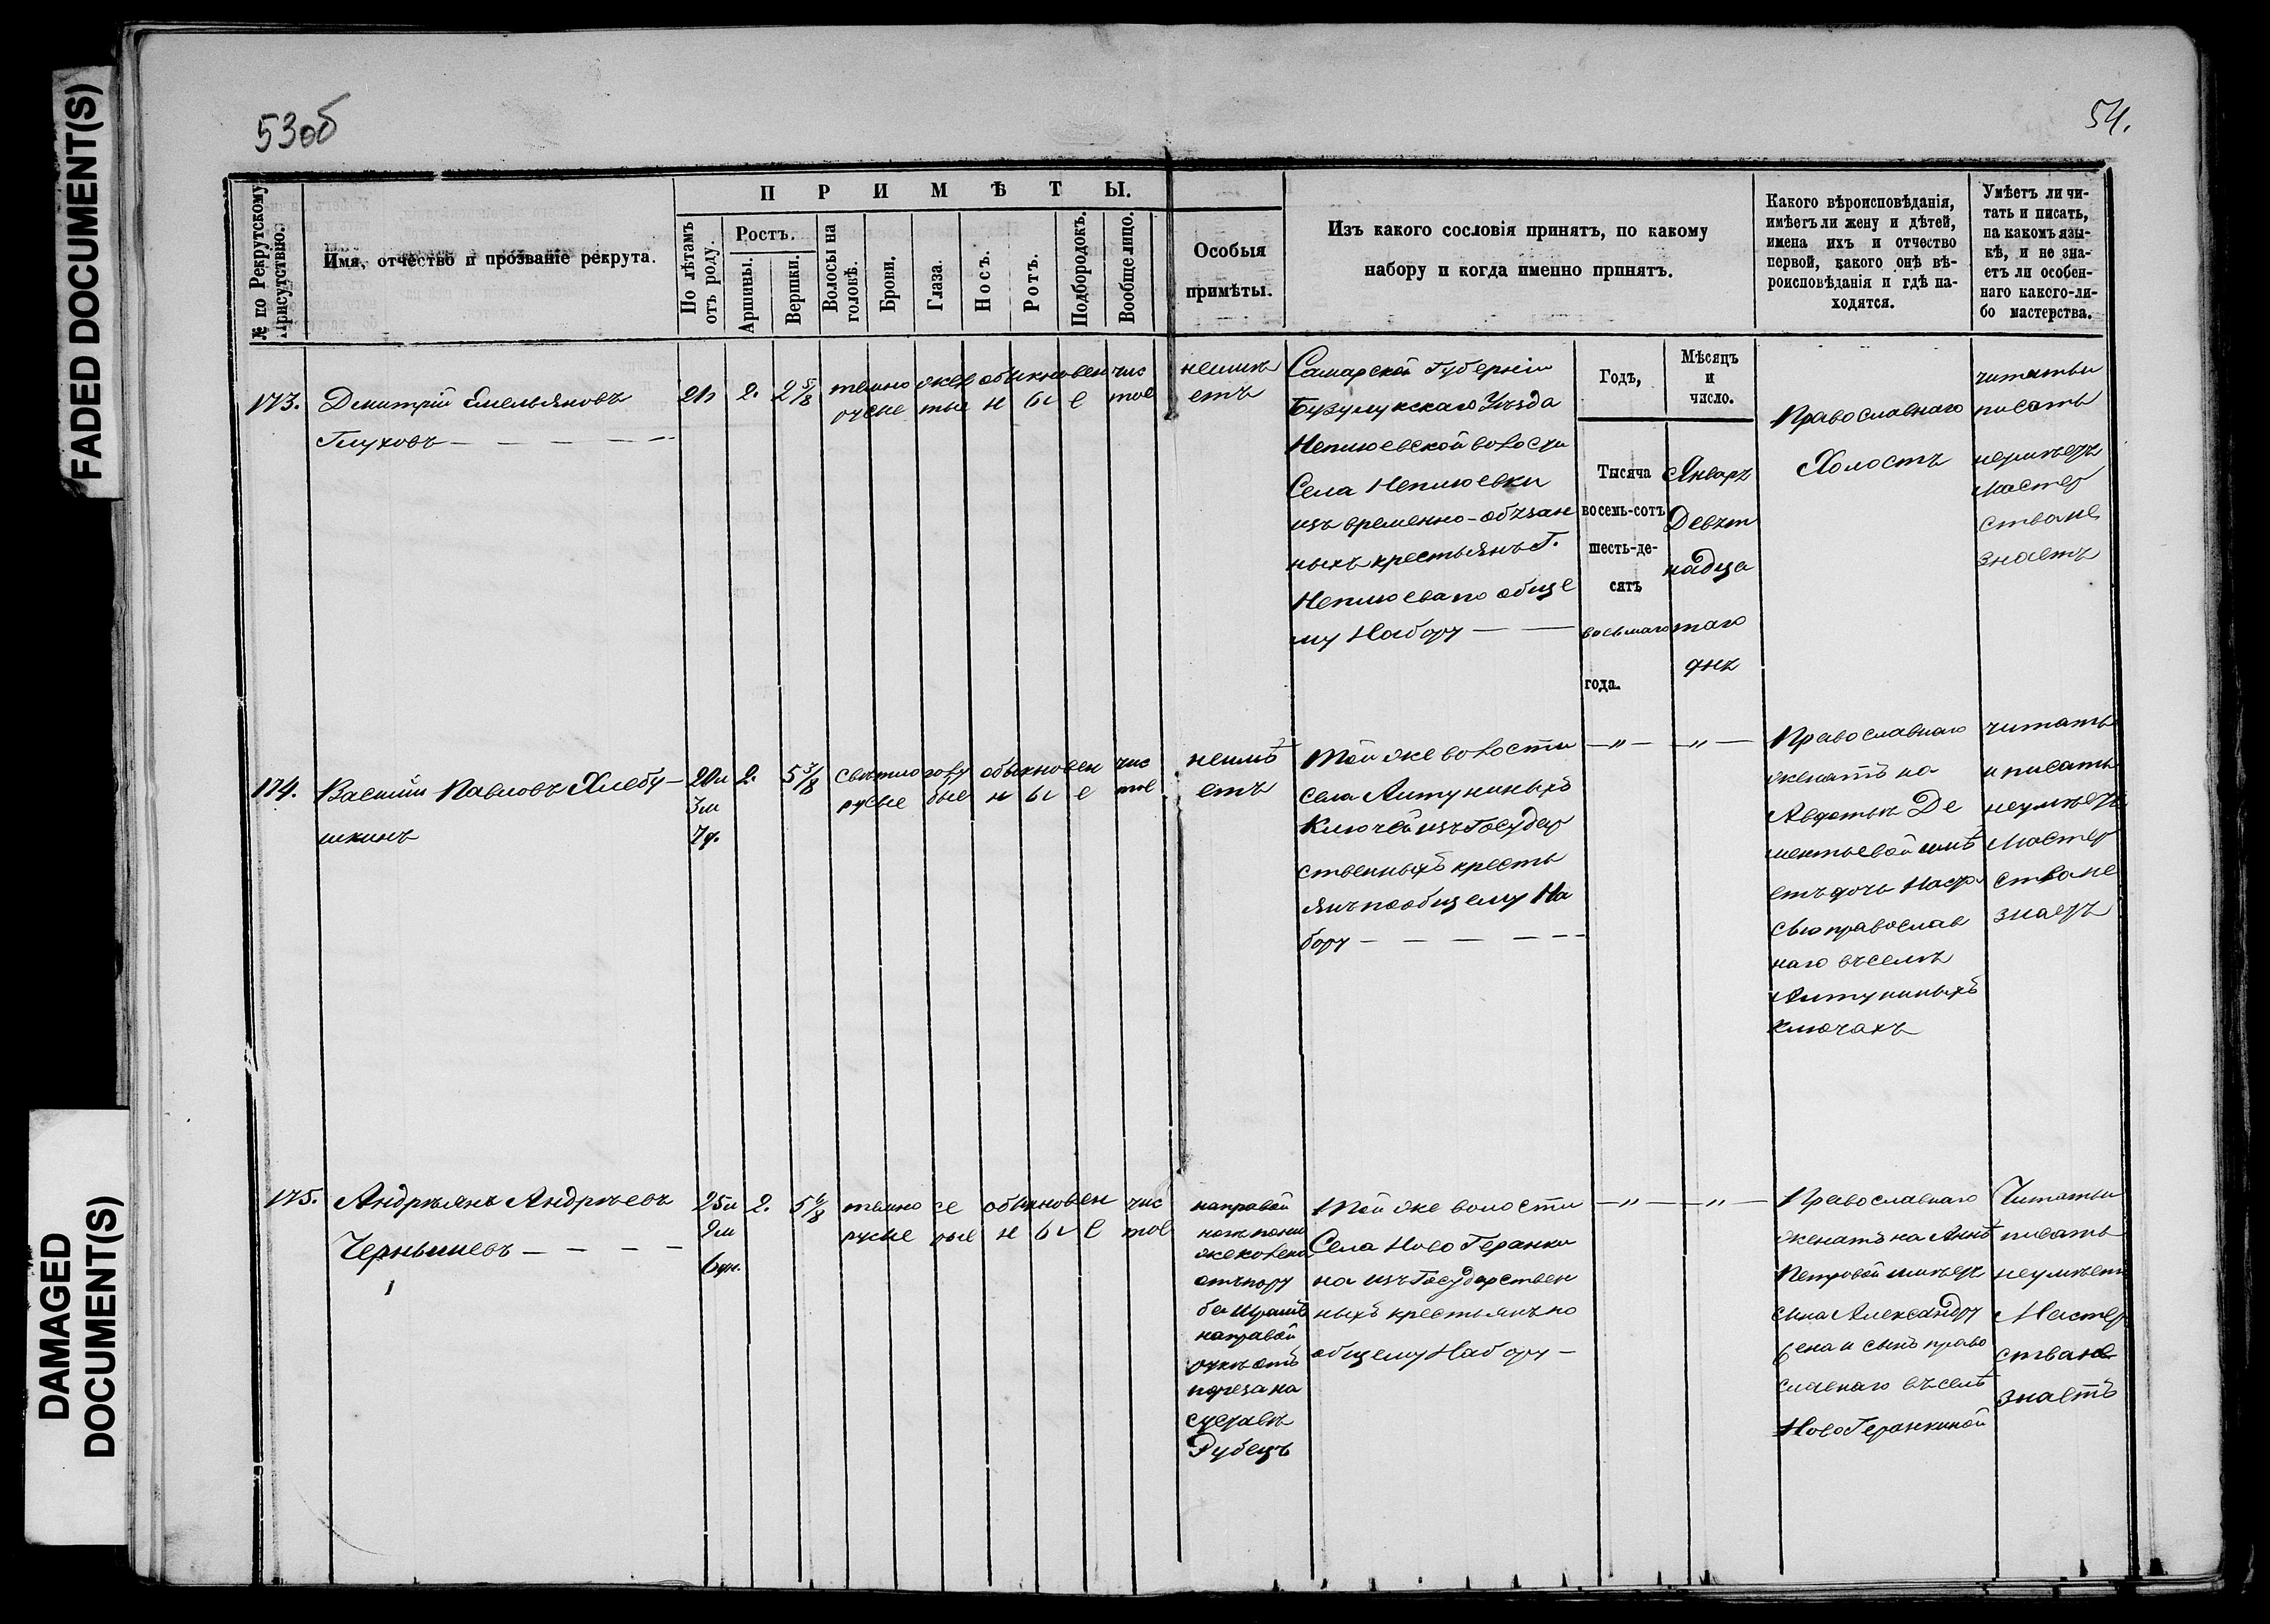 FADED DOCUMENT(S)
DAMAGED
DOCUMENT(S)
53об
54.
№ по Рекрутскому
Присутствію.
Имя, отчество и прозваніе рекрута.
ПРИМѢТЫ.
По лѣтамъ
отъ роду.
Ростъ.
Аршины.
Вершки.
Волосы на
головѣ.
Брови.
Глаза.
Носъ.
Ротъ.
Подбородокъ.
Вообще лицо.
Особыя
примѣты.
Изъ какого сословія принятъ, по какому
набору и когда именно принятъ.
Какого вѣроисповѣданія,
имѣетъ ли жену и дѣтей,
имена ихъ и отчество
первой, какого онѣ вѣ-
роисповѣданія и гдѣ на-
ходятся.
Умѣетъ ли чи-
тать и писать,
на какомъ язы-
кѣ, и не зна-
етъ ли особен-
наго какого-ли-
бо мастерства.
173.
Дмитрій Емельяновъ
Глуховъ
21
2.
2 5/8
темно
русые
жел
тые
обыкновен
н ы е
чис
тое
неимѣ
етъ
Самарской Губерніи
Бузулукскаго Уѣзда
Неплюевской волости
Села Неплюевки
изъ временно-обязан
ныхъ крестьянъ Г.
Неплюева по обще
му Набору
Годъ,
Тысяча
восемь-сотъ
шесть-де-
сятъ
восьмаго
года.
Мѣсяцъ
и
число.
Январь
Девят
надца
таго
дня
Православнаго
Холостъ
читать и
писать
неумѣетъ
Мастер
ства не
знаетъ
174.
Василій Павловъ Хлебу-
шкинъ
20л
3м
7д.
2.
5 3/8
светло
русые
голу
бые
обыкновен
н ы е
чис
тое
неимѣ
етъ
Той же волости
села Алтуниныхъ
Ключей изъ Государ
ственныхъ кресть
янъ по общему На
бору
—"—
—"—
Православнаго
женатъ на
Авдотьѣ Де
ментьевой имѣ
етъ дочь Наста
сью православ
наго въ селѣ
Алтуниныхъ
Ключахъ
читать
и писать
неумѣетъ
Мастер
ства не
знаетъ
175.
Андреянъ Андреевъ
Чернышевъ
25л
9м
6дн.
2.
5 6/8
темно
русые
се
рые
обыкновен
н ы е
чис
тое
на правой
ногѣ пони
же колена
отъ пору
ба шрамъ
на правой
рукѣ отъ
пореза на
суставѣ
Рубецъ
Той же волости
Села Ново Геранки
на изъ Государствен
ныхъ крестьянъ по
общему Набору
—"—
—"—
Православнаго
женатъ на Аннѣ
Петровой имѣетъ
сына Александру
жена и сынъ право
славнаго въ селѣ
Ново Геранкиной
Читать и
писать
неумѣетъ
Мастер
ства не
знаетъ